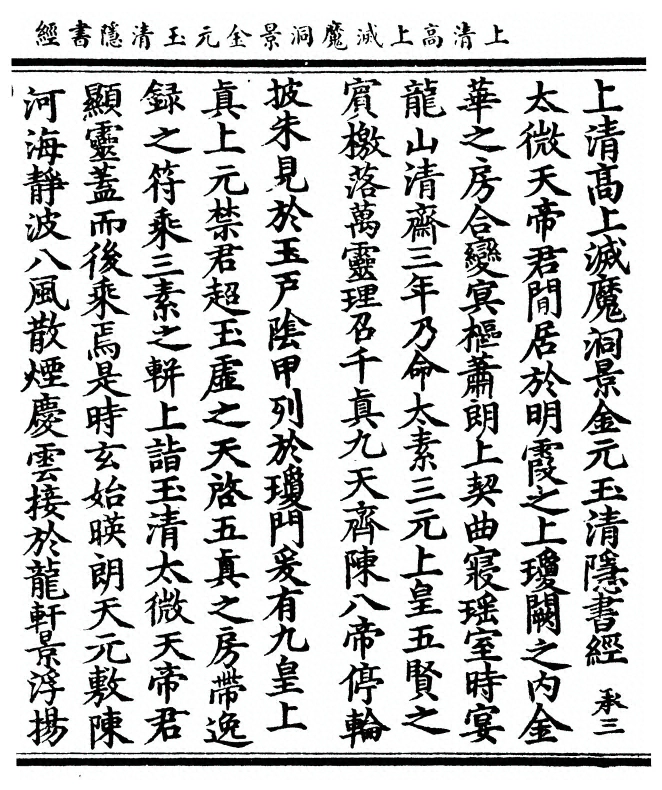 上清高上滅魔洞景金元玉清隱書經
上清高上滅魔洞景金元玉清隱書經 承三
太微天帝君閒居於明霞之上瓊闕之内金
華之房合變冥樞蕭朗上契曲寢瑤室時宴
龍山清齋三年乃命太素三元上皇五賢之
賓檄落萬靈理召千眞九天齊陳八帝停輪
披朱見於玉戸陰甲列於瓊門爰有九皇上
眞上元禁君超玉虛之天啓五眞之房帶逸
録之符乘三素之軿上詣玉清太微天帝君
顯靈蓋而後乘焉是時玄始暎朗天元敷陳
河海靜波八風散煙慶雲接於龍軒景浮揚